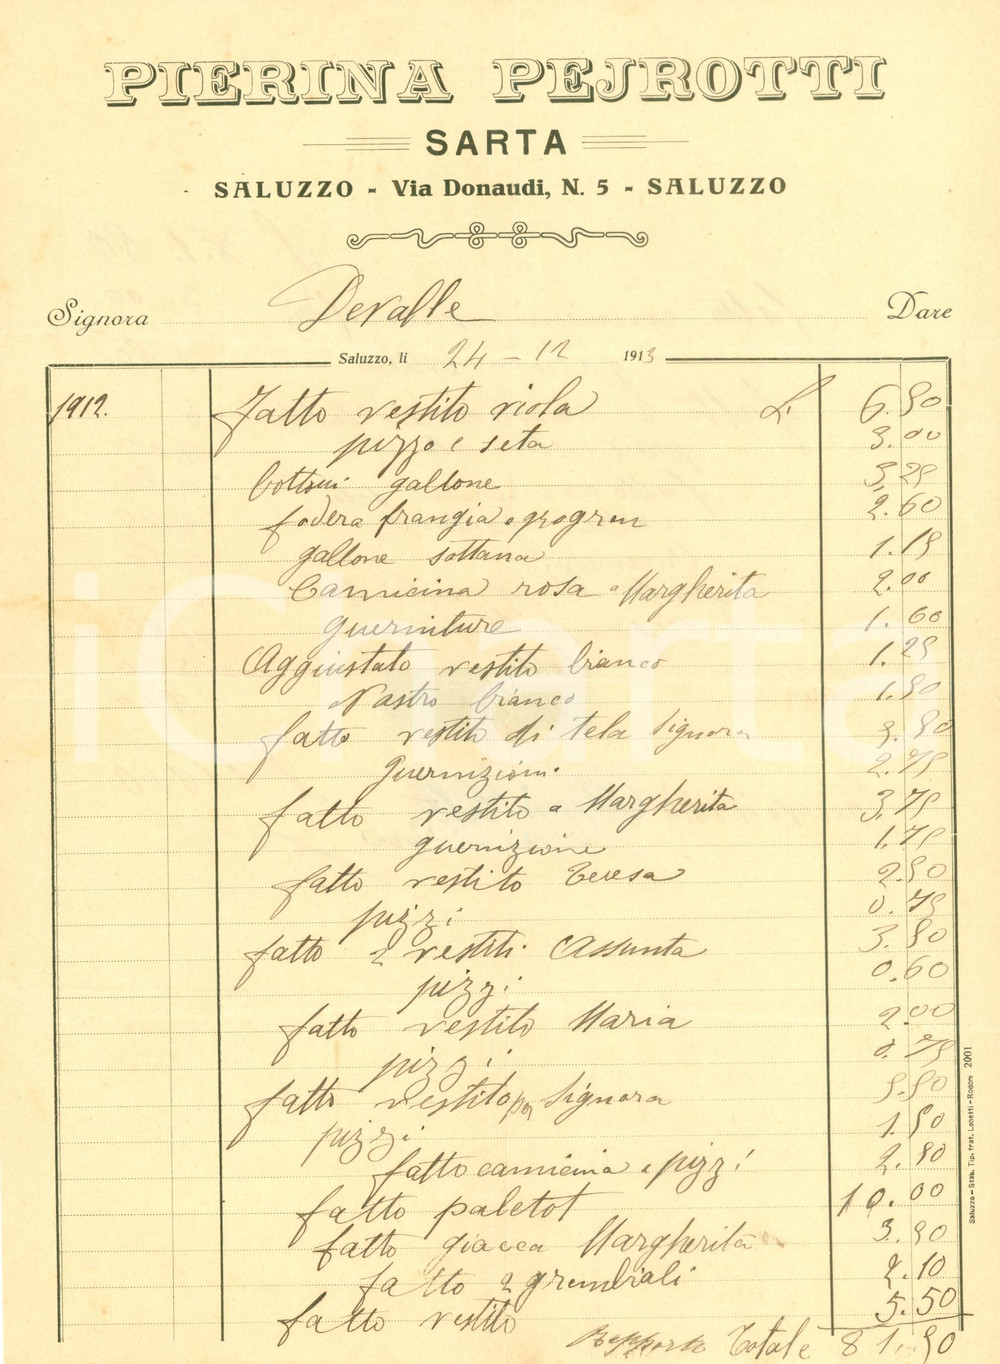 PIERINA PEJROTTI
SARTA
SALUZZO - Via Donaudi, N. 5 - SALUZZO
Signora Devalle Dare
Saluzzo, li 24 - 12 1913
1912. Fatto vestito viola L. 6.50
pizzo e seta 3.00
bottoni gallone 3,25
fodera frangia e grogren 2.60
gallone sottana 1.15
Camicina rosa a Margherita 2.00
guerniture 1.60
Aggiustato vestito bianco 1.25
Nastro bianco 1.50
fatto vestito di tela Signora 5.50
guernizioni 2.75
fatto vestito a Margherita 3,75
guernizione 1.75
fatto vestito Teresa 2.50
pizzi 0.75
fatto 2 vestiti Assunta 3.50
pizzi 0.60
fatto vestito Maria 2.00
pizzi 0.75
fatto vestito per Signora 5.50
pizzi 1.50
fatto camicina e pizzi 2.50
fatto paletot 10.00
fatto giacca Margherita 3.50
fatto 2 grembiali 2.10
fatto vestito 5.50
Totale 81.50
Saluzzo - Stab. Tip. frat. Lobetti-Bodoni 2001
iCharta